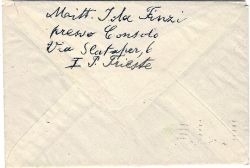 Maitt. Ida Finzi
presso Consolo
Via Slataper, 6
I P. Trieste